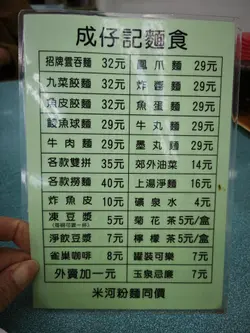 成仔記麵食
招牌雲吞麵 32元 鳳爪麵 29元
九菜餃麵 32元 炸醬麵 29元
魚皮餃麵 32元 魚蛋麵 29元
鯪魚球麵 29元 牛丸麵 29元
牛肉麵 29元 墨丸麵 29元
各款雙拼 35元 郊外油菜 14元
各款撈麵 40元 上湯淨麵 16元
炸魚皮 10元 礦泉水 4元
凍豆漿 5元 菊花茶 5元/盒
淨飲豆漿 7元 檸檬茶 5元/盒
雀巢咖啡 8元 罐裝可樂 7元
外賣加一元 玉泉忌廉 7元
米河粉麵同價